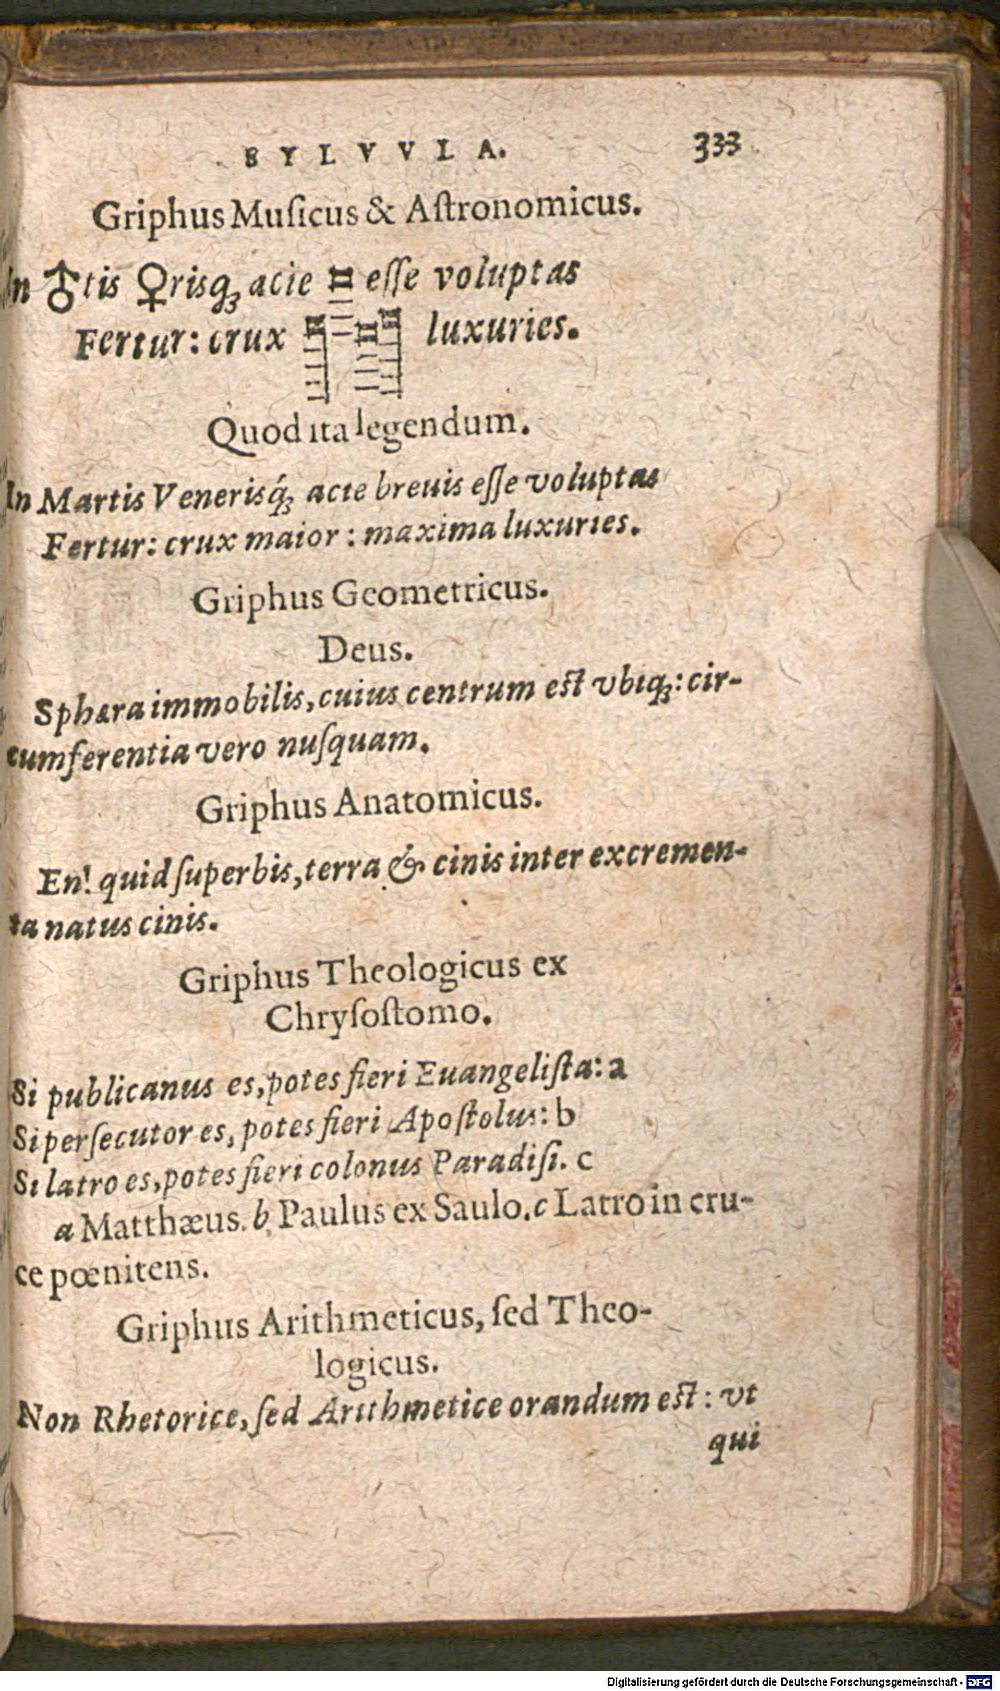 SYLVVLA. 333
Griphus Muſicus & Aſtronomicus.
In ♂tis ♀risqꝫ acie eſſe voluptas
Fertur: crux luxuries.
Quod ita legendum.
In Martis Venerisq́ꝫ acie breuis eſſe voluptas
Fertur: crux maior: maxima luxuries.
Griphus Geometricus.
Deus.
Sphæra immobilis, cuius centrum eſt vbiqꝫ: cir-
cumferentia vero nuſquam.
Griphus Anatomicus.
En! quid ſuperbis, terra & cinis inter excremen-
ta natus cinis.
Griphus Theologicus ex
Chryſoſtomo.
Si publicanus es, potes fieri Euangeliſta: a
Si perſecutor es, potes fieri Apoſtolus: b
Si latro es, potes fieri colonus Paradiſi. c
a Matthæus. b Paulus ex Saulo. c Latro in cru-
ce pœnitens.
Griphus Arithmeticus, ſed Theo-
logicus.
Non Rhetorice, ſed Arithmetice orandum eſt: vt
qui
Digitalisierung gefördert durch die Deutsche Forschungsgemeinschaft - DFG